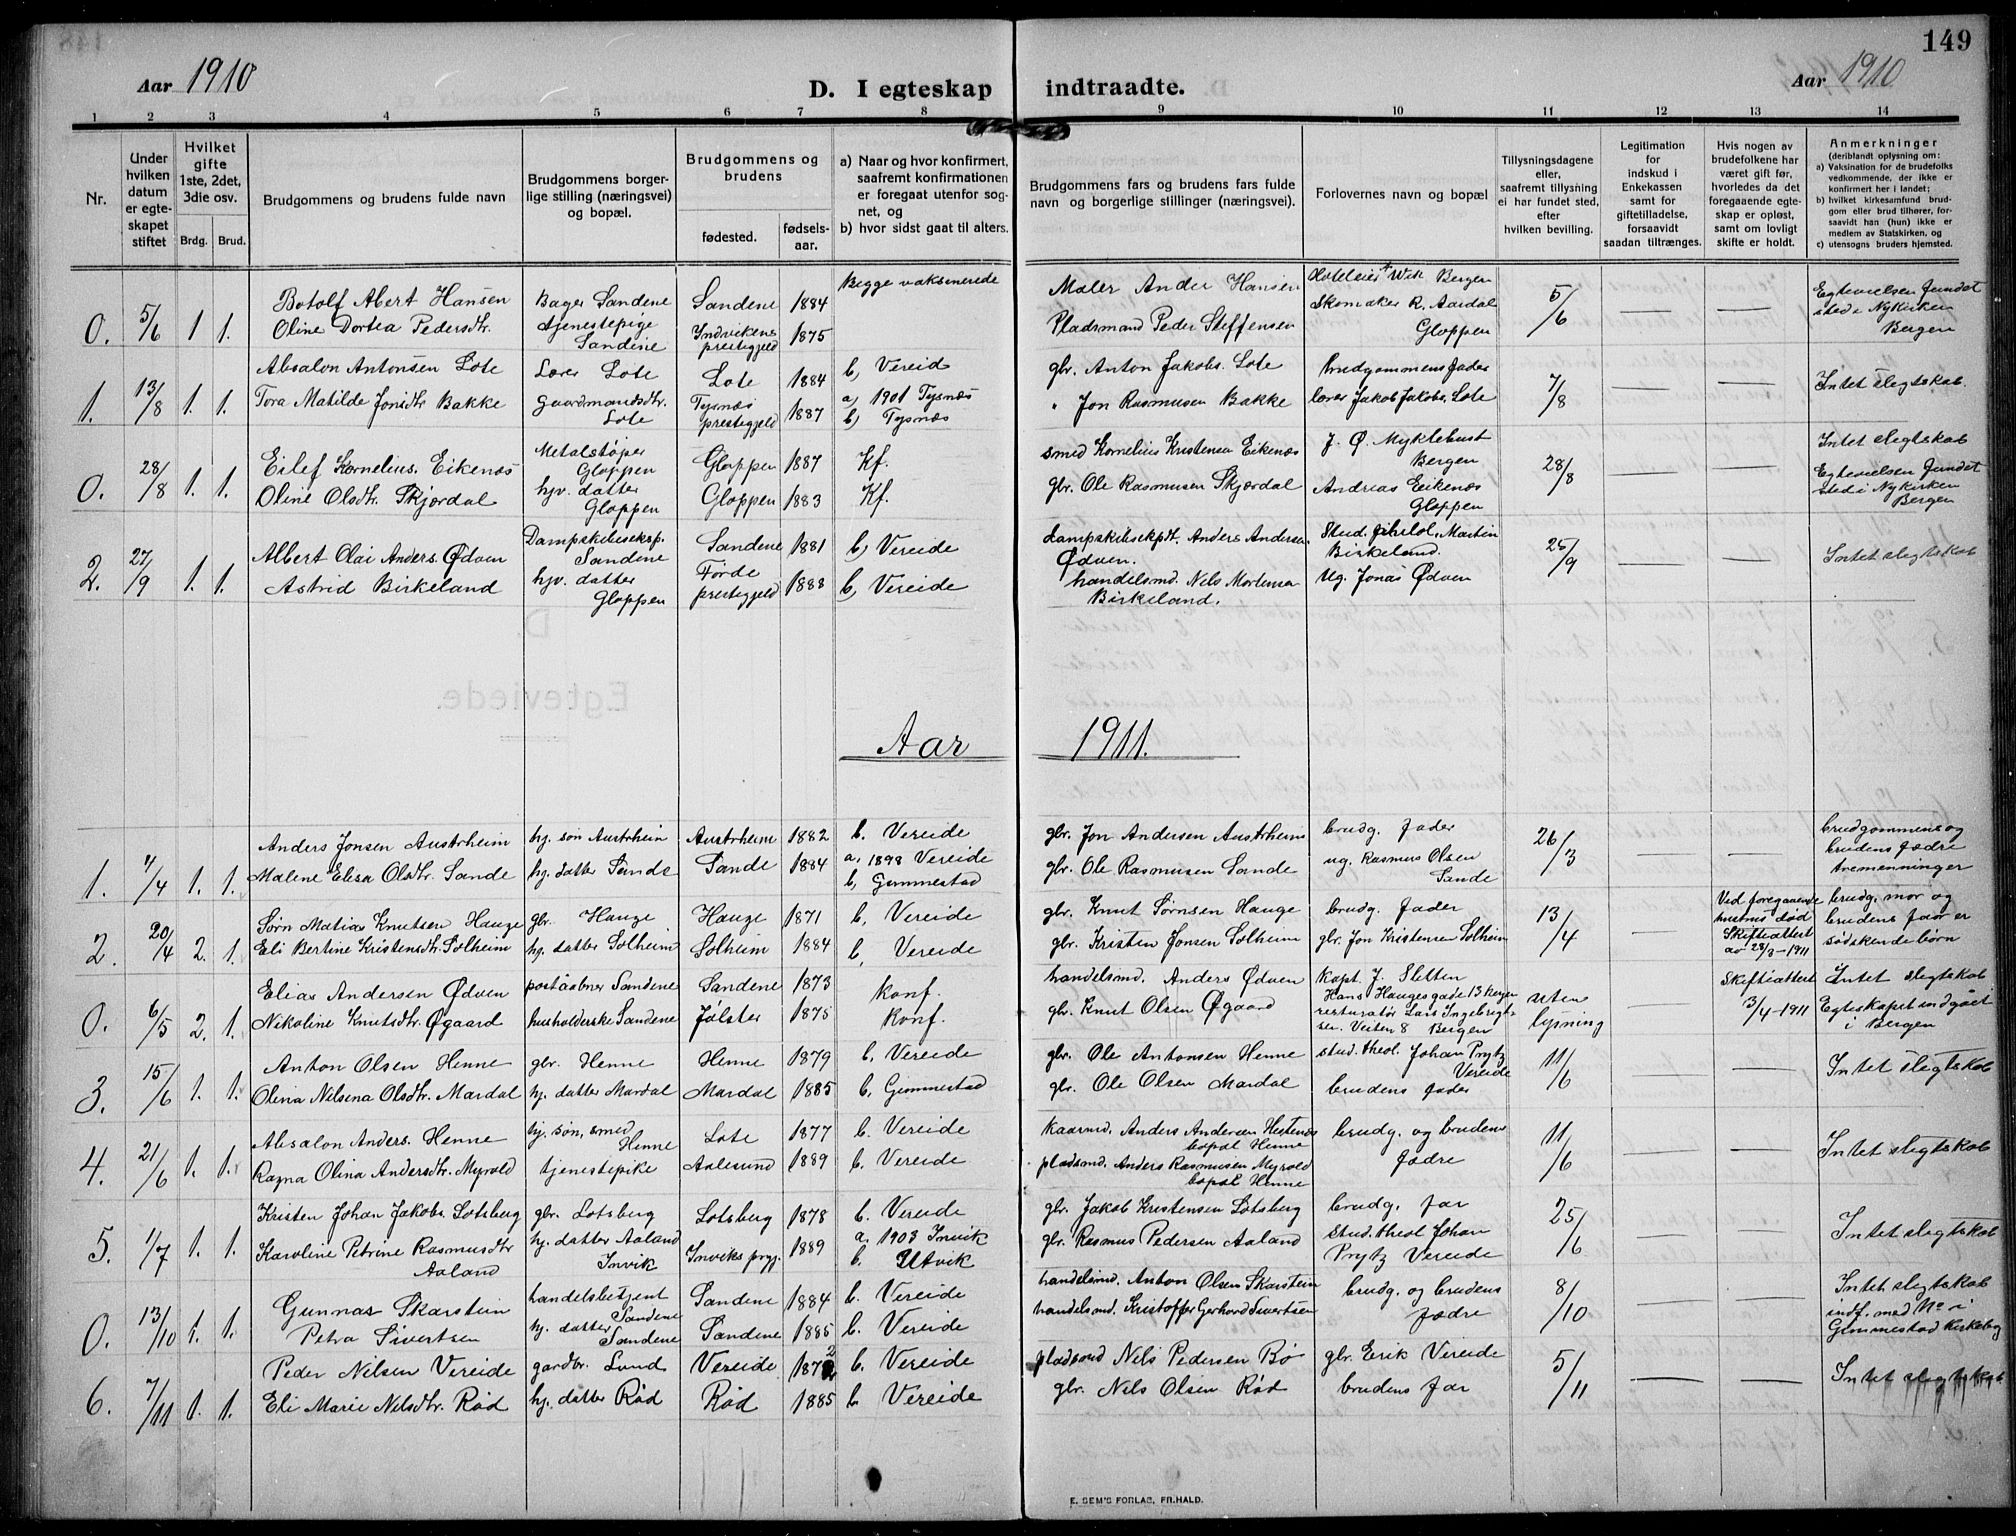 149
Aar 1910
D. I egteskap indtraadte.
Aar 1910
1 2 3 4 5 6 7 8 9 10 11 12 13 14
Nr.
Under hvilken datum er egteskapet stiftet
Hvilket gifte 1ste, 2det, 3die osv.
Brdg. Brud.
Brudgommens og brudens fulde navn
Brudgommens borgerlige stilling (næringsvei) og bopæl.
Brudgommens og brudens
fødested.
fødselsaar.
a) Naar og hvor konfirmert, saafremt konfirmationen er foregaat utenfor sognet, og
b) hvor sidst gaat til alters.
Brudgommens fars og brudens fars fulde navn og borgerlige slillinger (næringsvei).
Forlovernes navn og bopæl
Tillysningsdagene eller, saafremt tillysning ei har fundet sted, efter hvilken bevilling.
Legitimation for indskud i Enkekassen samt for giftetilladelse, forsaavidt saadan tiltrænges.
Hvis nogen av brudefolkene har været gift før, hvorledes da det foregaaende egteskap er opløst, samt om lovligt skifte er holdt.
Anmerkninger
(deriblandt oplysning om:
a) Vaksination for de brudefolks vedkommende, der ikke er konfirmert her i landet;
b) hvilket kirkesamfund brudgom eller brud tilhører, forsaavidt han (hun) ikke er medlem av Statskirken, og
c) utensogns bruders hjemsted.
0. 5/6 1 1. Botolf Abert Hansen Bager Sandene Sandene 1884 Begge vaksinerede Maler Ander Hansen Hoteleier Wik Bergen 5/6 — — Egtevielsen fundet
Oline Dortea Pedersdtr. tjenestepige Sandene Yndvikens prestegjeld 1875 Pladsmand Peder Steffensen Skomaker R. Aardal Gloppen sted i Nykirken Bergen
1. 13/8 1. 1. Absalon Antonsen Lote Lærer Lote Lote 1884 b, Vereid gbr. Anton Jakobs. Lote brudgommens fader 7/8 — — Intet slegtskab.
Tora Matilde Jonsdtr Bakke gaardmandsdtr. Lote Tysnæs prestegjeld 1887 a) 1901 Tysnæs b) Tysnæs " Jon Rasmusen Bakke lærer Jakob Jakobs. Lote
0. 28/8 1. 1. Eilef Kornelius. Eikenæs Metalstøper Gloppen Gloppen 1887 Kf. smed Kornelius Kristensen Eikenæs J. Ø. Myklebust Bergen 28/8 — — Intet slegtskab
Oline Olsdtr. Skjørdal hjv. datter Gloppen Gloppen 1883 Kf. gbr. Ole Rasmusen Skjærdal Andreas Eikenæs Gloppen Egtevielsen fundet sted i Nykirken Bergen
2. 27/9 1. 1. Albert Olai Anders. Ødven Dampskibseksp. Sandene Sandene 1881 b, Vereide dampskibsekpdt. Anders Andersen Ødven. Stud. filolol. Martin Birkeland. 25/9 — — Intet slegtskab
Astrid Birkeland hjv. datter Gloppen Førde prestegjeld 1888 b, Vereide handelsmd. Nels Mortensen Birkeland. Ug. Jonas Ødven
Aar 1911.
1. 1/4 1. 1. Anders Jonsen Austrheim hj. søn Austrheim Austrheim 1882 b. Vereide gbr. Jon Andersen Austrheim brudg. fader 26/3 — — brudgommens og
Malene Elisa Olsdtr. Sande hj. datter Sande Sande 1884 a, 1898 Vereide b, Gimmestad gbr. Ole Rasmusen Sande ug. Rasmus Olsen Sande brudens fædre tremenninger
2. 20/4 2. 1. Sørn Matias Knutsen Hauge gbr. Hauge Hauge 1871 b, Vereide gbr. Knut Sørnsen Hauge brudg. fader 13/4 — Ved foregaaende hustrus død brudg. mor og
Eli Bertine Kristensdtr. Solheim hj. datter Solheim Solheim 1884 b, Vereide gbr. Kristen Jonsen Solheim gbr. Jon Kristensen Solheim Skifteattest av 28/3-1911 brudens faar er sødskendebørn
0. 6/5 2. 1. Elias Andersen Ødven postaabner Sandene Sandene 1873 konf. handelsmd. Anders Ødven kapt. J. Sletten Hans Haugesgade 13 Bergen uten lysning Skifteattest 3/4-1911 Intet slegtskab
Nikoline Knutsdtr. Øgaard husholderske Sandene Jølster 1875 konf. gbr. Knut Olsen Øgaard resturatør Lars Ingebrigtsen. Veiten 8 Bergen Egteskapet indgået i Bergen
3. 15/6 1. 1. Anton Olsen Henne gbr. Henne Henne 1879 b. Vereide gbr. Ole Antonsen Henne stud. theol. Johan Prytz Vereide 11/6 — — Intet slegtskab
Olina Nilsena Olsdtr. Mardal hj. datter Mardal Mardal 1885 b, Gimmestad gbr. Ole Olsen Mardal brudens fader
4. 21/6 1. 1. Absalon Anders. Henne hj. søn, smed Henne Lote 1877 b. Vereide kaarmd. Anders Andersen Hestenes bopæl Henne brudg. og brudens fædre 11/6 — — Intet slegtskab
Ragna Olina Andersdtr. Myrold tjenestepike Aalesund 1889 b. Vereide pladsmd. Anders Rasmusen Myrold bopæl Henne
5. 1/7 1. 1. Kristen Johan Jakobs. Lotsberg gbr. Lotsberg Lotsberg 1878 b. Vereide gbr. Jakob Kristensen Lotsberg brudg. far 25/6 — — Intet slegtskab
Karoline Petrine Rasmusdtr Aaland hj. datter Aaland Invik Inviks prgj. 1889 a. 1903 Invik b. Utvik gbr. Rasmus Pedersen Aaland Stud. theol Johan Prytz Vereide
0. 13/10 1. 1. Gunnas Skarstein handelsbetjent Sandene Sandene 1884 b. Vereide handelsmd. Anton Olsen Skarstein brudg. og brudens fædre 8/10 — — Intet slegtskab
Petra Sivertsen hj. datter Sandene Sandene 1885 b. Vereide handelsmd. Kristoffer Gerhard Sivertsen indf. med No i Gimmestad kirkebog
6. 7/11 1. 1. Peder Nilsen Vereide gardbr. Lund Vereide 1872 b. Vereide pladsmd Nils Pedersen Bø gbr. Erik Vereide 5/11 — — Intet slegtskab
Eli Marie Nilsdtr. Rød hj. datter Rød Rød 1885 b Vereide gbr. Nils Olsen Rød brudens far
E. SEM'S FORLAG, FR.HALD.